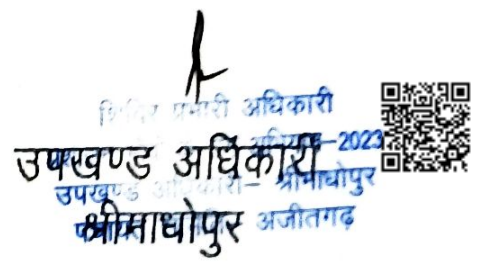 शिविर प्रभारी अधिकारी
2023
उपखण्ड अधिकारी
उपखण्ड अधिकारी- श्रीमाधोपुर
श्रीमाधोपुर
अजीतगढ़